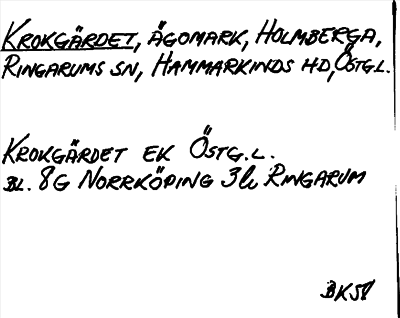 KROKGÄRDET, ÄGOMARK, HOLMBERGA,
RINGARUMS SN, HAMMARKINDS HD, ÖSTG.L.
KROKGÄRDET EK ÖSTG.L.
BL. 8G NORRKÖPING 3h RINGARUM
BK58